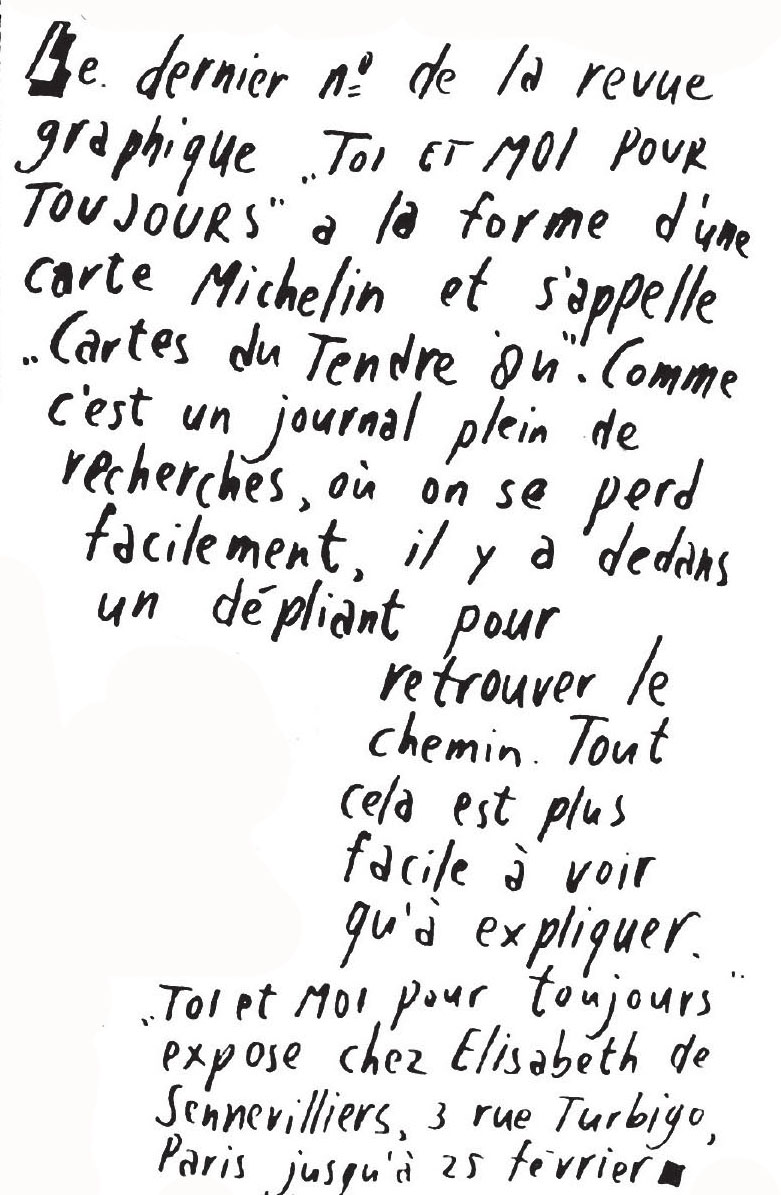 Le dernier nº de la revue
graphique „TOI ET MOI POUR
TOUJOURS" a la forme d'une
carte Michelin et s'appelle
„Cartes du Tendre 8u". Comme
c'est un journal plein de
recherches, où on se perd
facilement, il y a dedans
un dépliant pour
retrouver le
chemin. Tout
cela est plus
facile à voir
qu'à expliquer.
„TOI et MOI pour toujours"
expose chez Elisabeth de
Sennevilliers, 3 rue Turbigo,
Paris jusqu'à 25 février